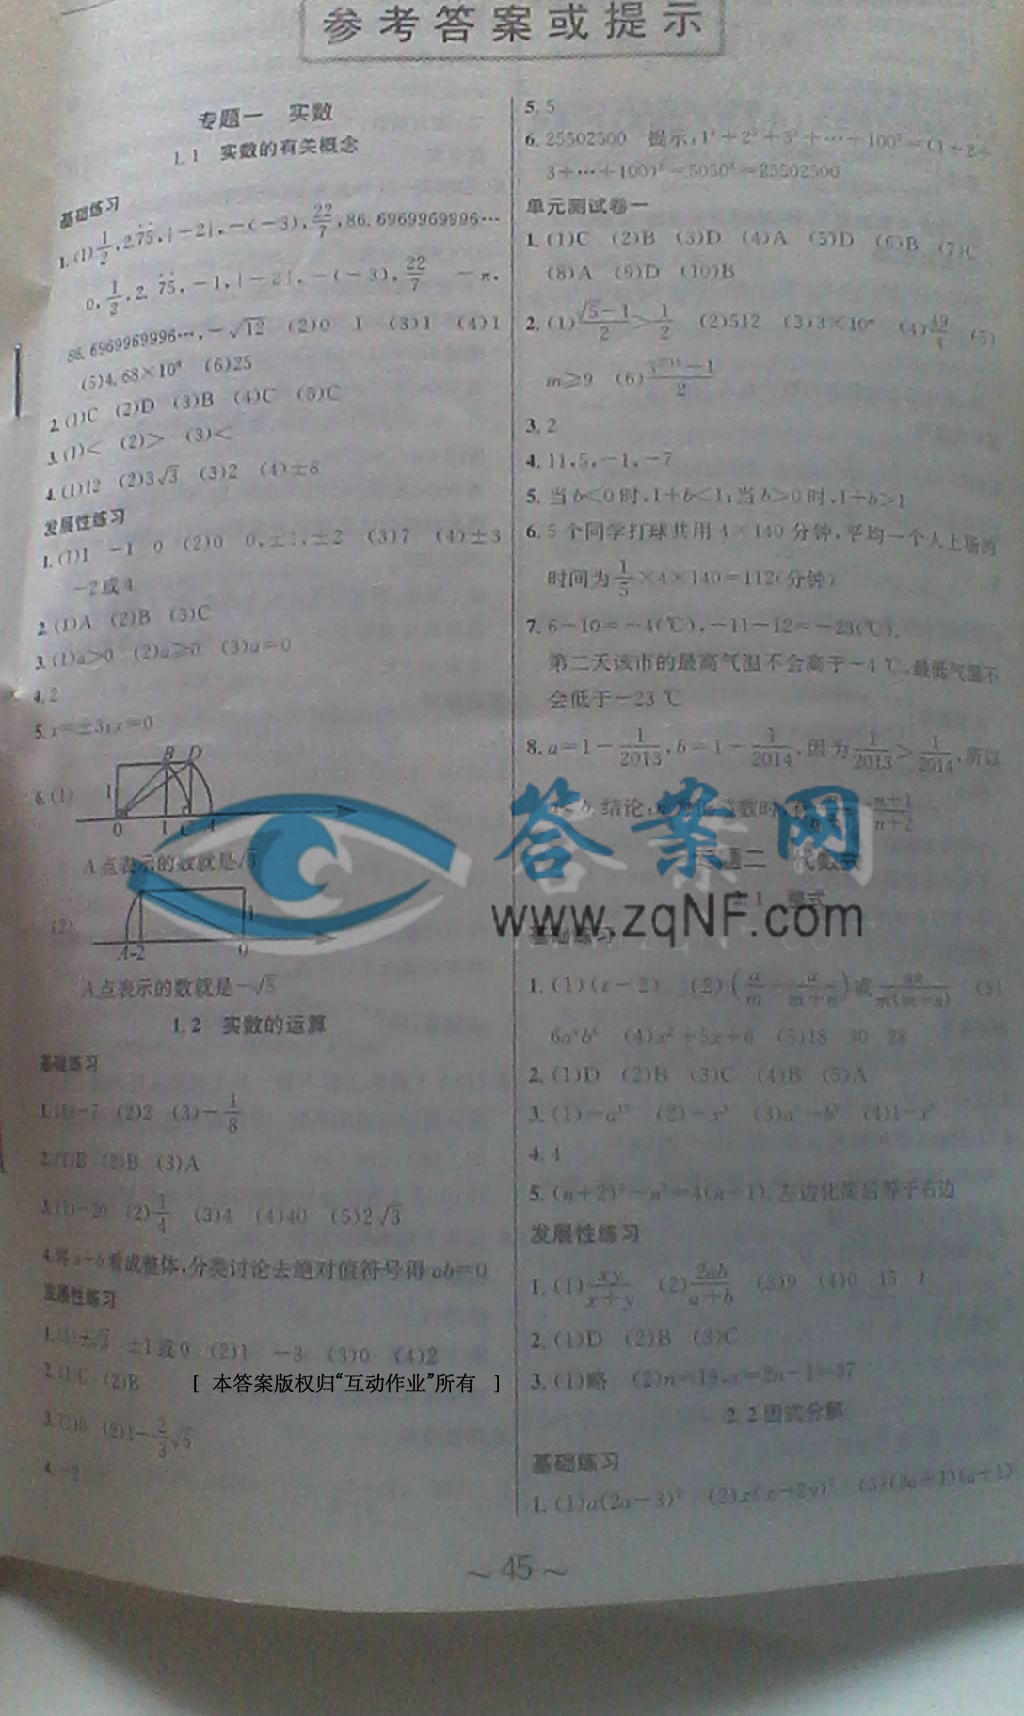 参考答案或提示
专题一 实数
1.1 实数的有关概念
基础练习
1.(1)1/2,2.7̇5̇,|-2|,-(-3),22/7,86.6969969996…
0,1/2,2.7̇5̇,-1,|-2|,-(-3),22/7 -π,
86.6969969996…,-√12 (2)0 1 (3)1 (4)1
(5)4.68×10 (6)25
2.(1)C (2)D (3)B (4)C (5)C
3.(1)< (2)> (3)<
4.(1)12 (2)3√3 (3)2 (4)±8
发展性练习
1.(1)1 -1 0 (2)0 0,±1,±2 (3)7 (4)±3
-2或4
2.(1)A (2)B (3)C
3.(1)a>0 (2)a≥0 (3)a=0
4.2
5.x=±3;x=0
6.(1)
B D
1
0 1 C A
A点表示的数就是√3
(2)
1
A -2 0
A点表示的数就是-√5
1.2 实数的运算
基础练习
1.(1)-7 (2)2 (3)-1/8
2.(1)B (2)B (3)A
3.(1)-20 (2)1/4 (3)4 (4)40 (5)2√3
4.将a+b看成整体,分类讨论去绝对值符号得ab=0
发展性练习
1.(1)±√3 ±1或0 (2)1 -3 (3)0 (4)2
2.(1)C (2)B
[ 本答案版权归“互动作业”所有 ]
3.(1)0 (2)1-2/3√6
4.-2
5.5
6.25502500 提示:1³+2³+3³+…+100³=(1+2+
3+…+100)²=5050²=25502500
单元测试卷一
1.(1)C (2)B (3)D (4)A (5)D (6)B (7)C
(8)A (9)D (10)B
2.(1)(√5-1)/2>1/2 (2)512 (3)3×10 (4)49/4 (5)
m≥9 (6)
3.2
4.11,5,-1,-7
5.当b<0时,1+b<1;当b>0时,1+b>1
6.5个同学打球共用4×140分钟,平均一个人上场的
时间为1/5×4×140=112(分钟)
7.6-10=-4(℃),-11-12=-23(℃).
第二天该市的最高气温不会高于-4 ℃,最低气温不
会低于-23 ℃
8.a=1-1/2013,b=1-1/2014,因为1/2013>1/2014,所以
a<b.结论:
答案网
www.zqNF.com
代数式
整式
基础练习
1.(1)(t-2) (2)(a/m-a/(m+n))或an/m(m+n) (3)
(4)x²+5x+6 (5)18 30 28
2.(1)D (2)B (3)C (4)B (5)A
3.(1) (2)-x³ (3) (4)
4.4
5.(n+2)²-n²=4(n+1),左边化简后等于右边
发展性练习
1.(1)xy/(x+y) (2)2ab/(a+b) (3)9 (4)0 15 1
2.(1)D (2)B (3)C
3.(1)略 (2)n=19,x=2n-1=37
2.2因式分解
基础练习
1.(1)a(2a-3)² (2)x(x-2y)² (3)(3a+1)(a+1)
~ 45 ~